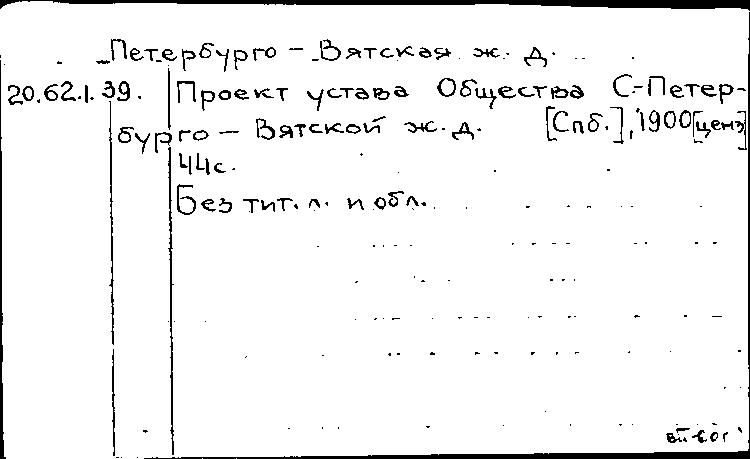 Петербурго – Вятская ж. д.
20.62.1.39. Проект устава Общества С-Петер-
бурго – Вятской ж. д. [Спб.], 1900 [ценз]
44 с.
Без тит. л. и обл.